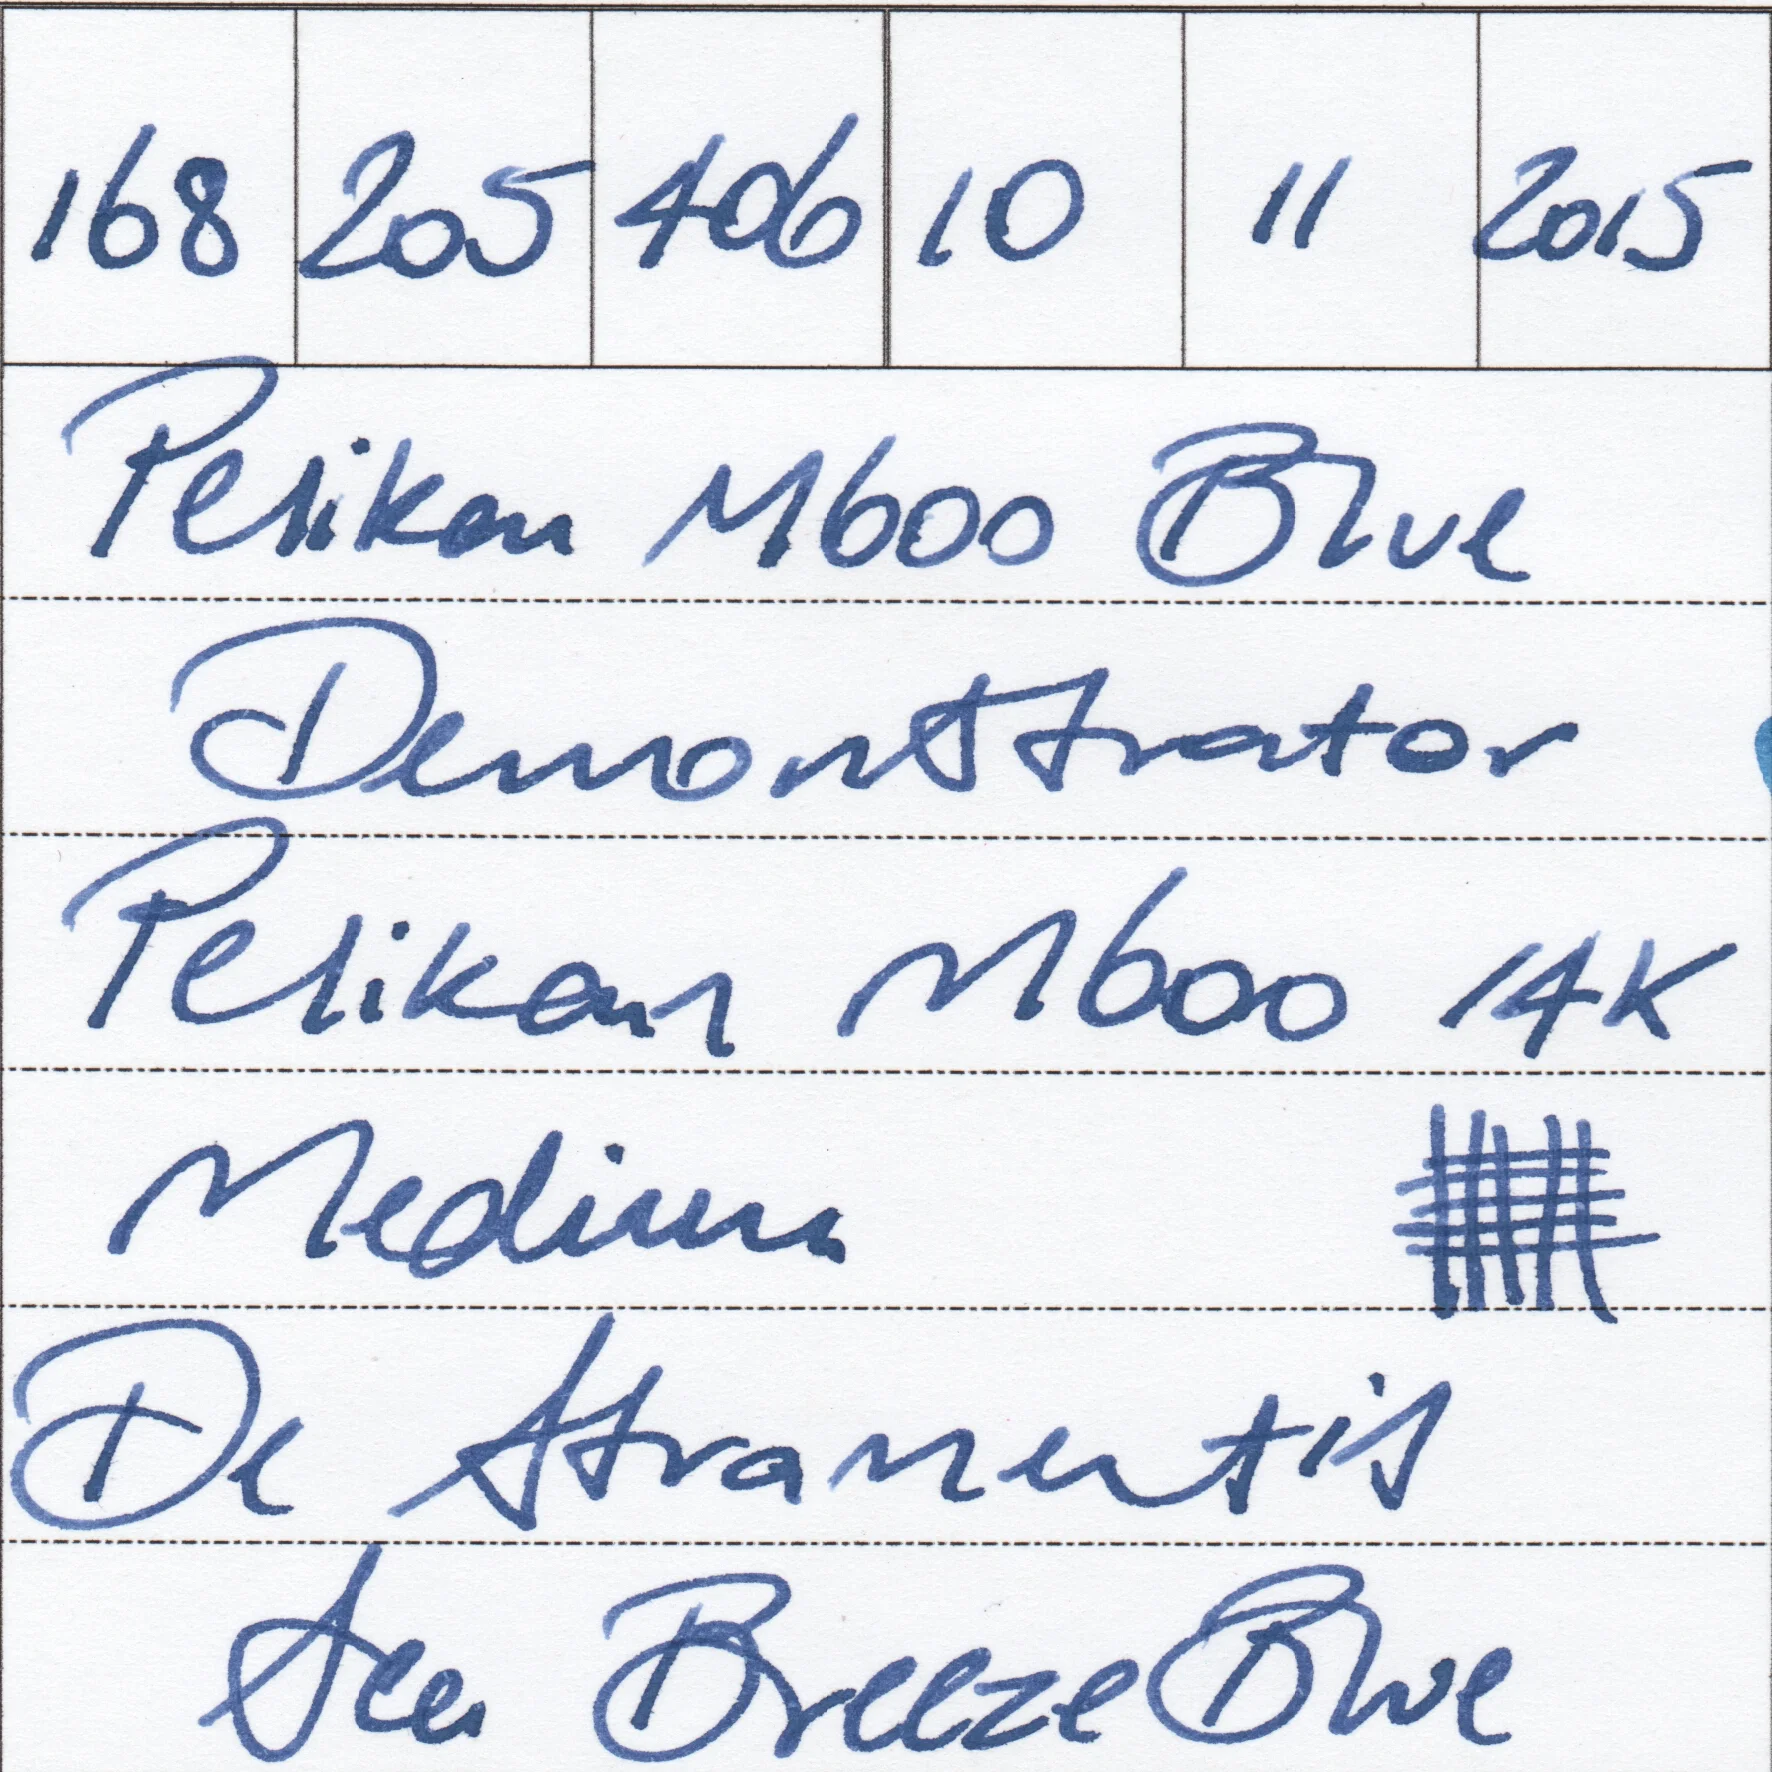 168 205 406 10 11 2015
Pelikan M600 Blue
Demonstrator
Pelikan M600 14K
Medium
De Atramentis
Sea Breeze Blue